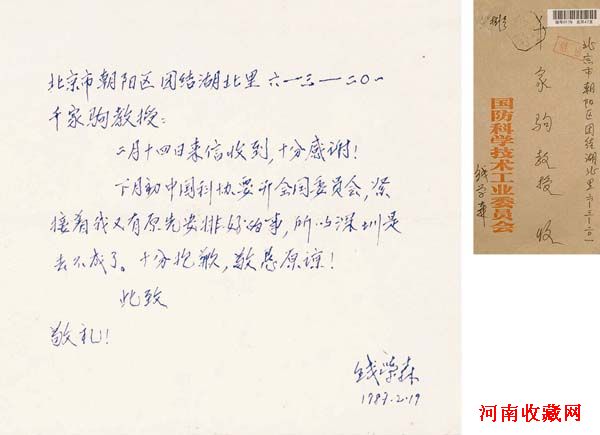 北京市朝阳区团结湖北里六—三—二〇一
千家驹教授：
二月十四日来信收到，十分感谢！
下月初中国科协要开全国委员会，紧
接着我又有原先安排好的事，所以深圳是
去不成了。十分抱歉，敬恳原谅！
此致
敬礼！
钱学森
1987.2.19
北京市朝阳区团结湖北里六—三—二〇一
千家驹教授 收
国防科学技术工业委员会
钱学森
河南收藏网